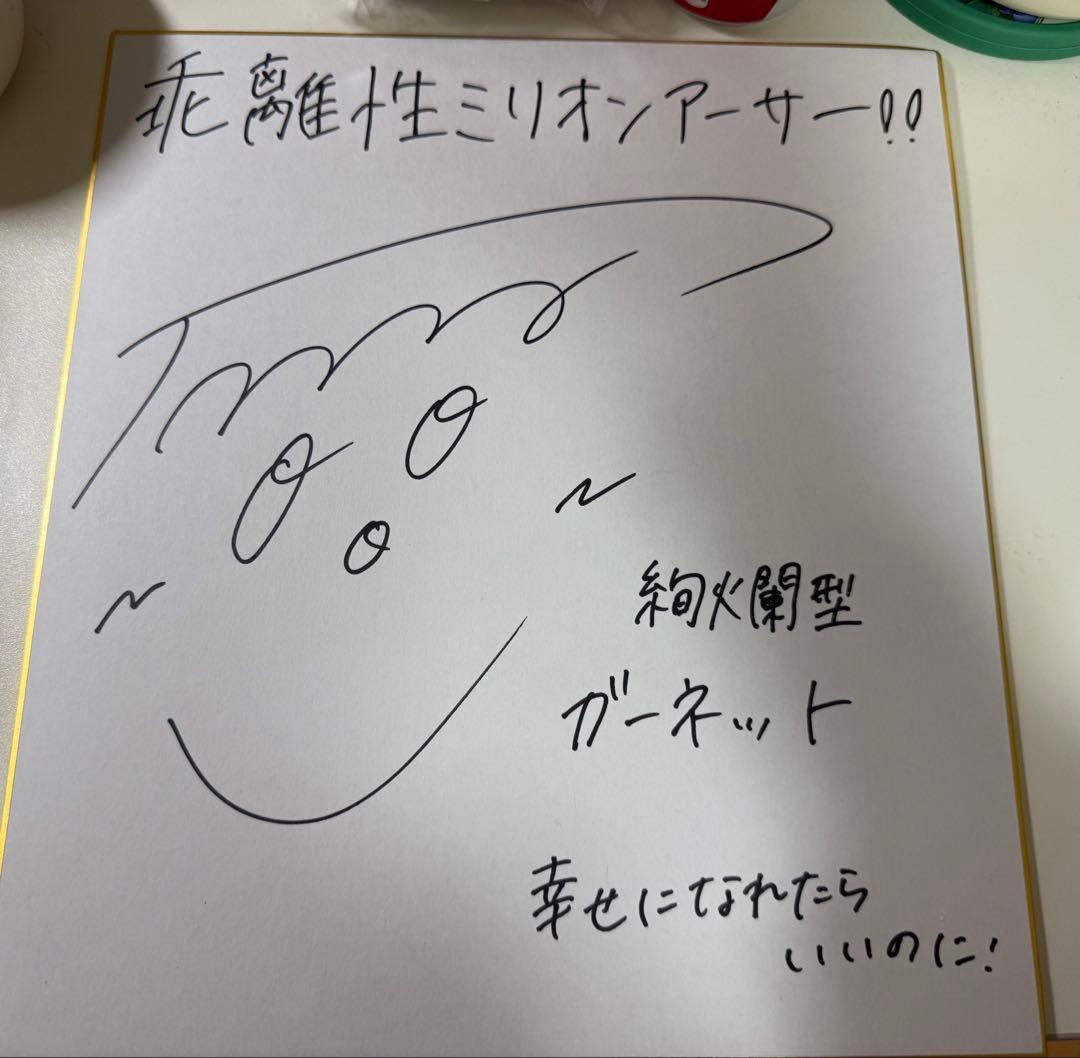 乖離性ミリオンアーサー!!
絢爛闌型
ガーネット
幸せになれたら
いいのに!